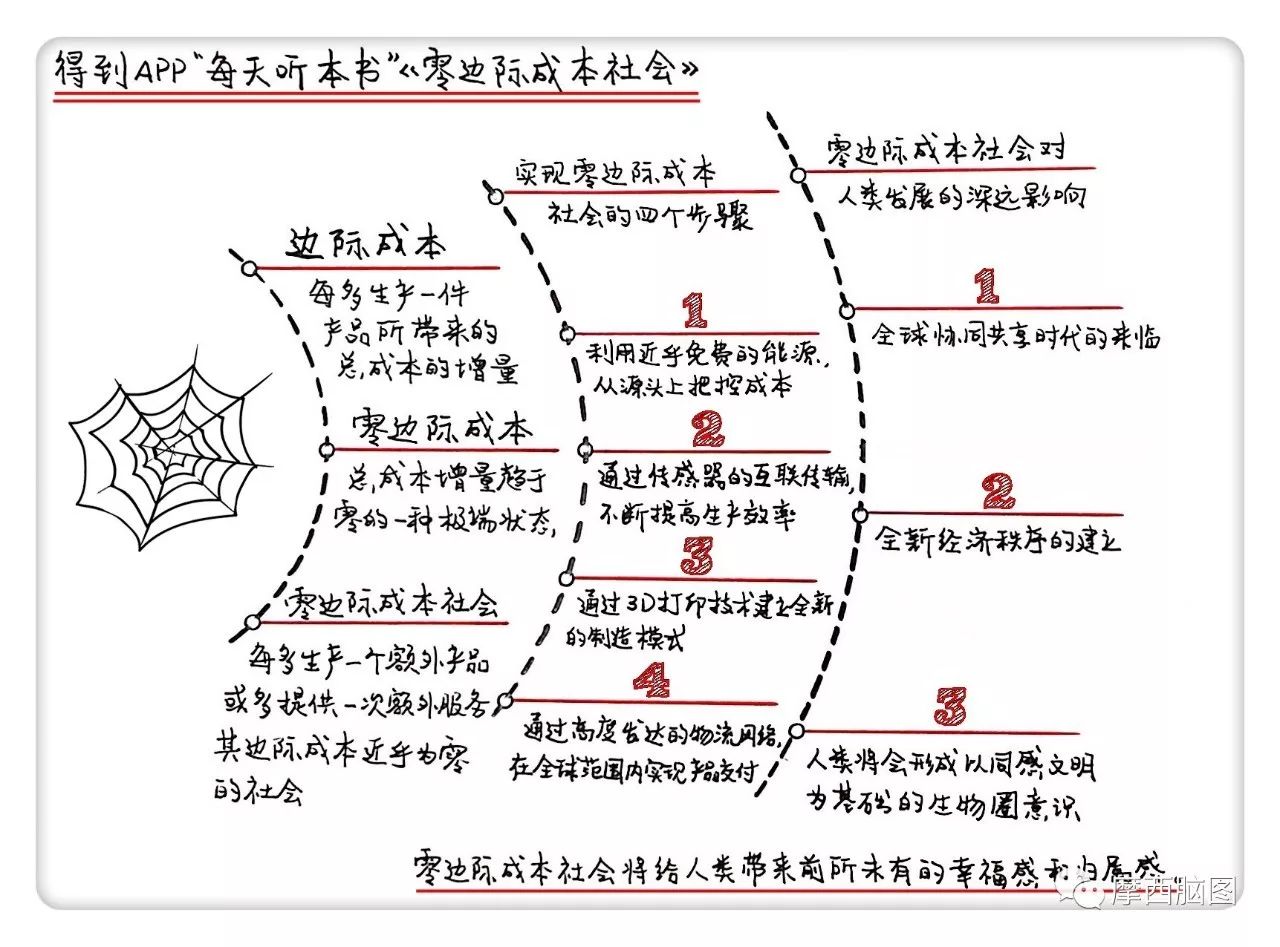 得到APP"每天听本书"《零边际成本社会》
边际成本
每多生产一件
产品所带来的
总成本的增量
零边际成本
总成本增量趋于
零的一种极端状态
零边际成本社会
每多生产一个额外产品
或多提供一次额外服务
其边际成本近乎为零
的社会
实现零边际成本
社会的四个步骤
1
利用近乎免费的能源,
从源头上把控成本
2
通过传感器的互联传输,
不断提高生产效率
3
通过3D打印技术建立全新
的制造模式
4
通过高度发达的物流网络,
在全球范围内实现产品交付
零边际成本社会对
人类发展的深远影响
1
全球协同共享时代的来临
2
全新经济秩序的建立
3
人类将会形成以同感文明
为基础的生物圈意识
零边际成本社会将给人类带来前所未有的幸福感和归属感。
摩西脑图